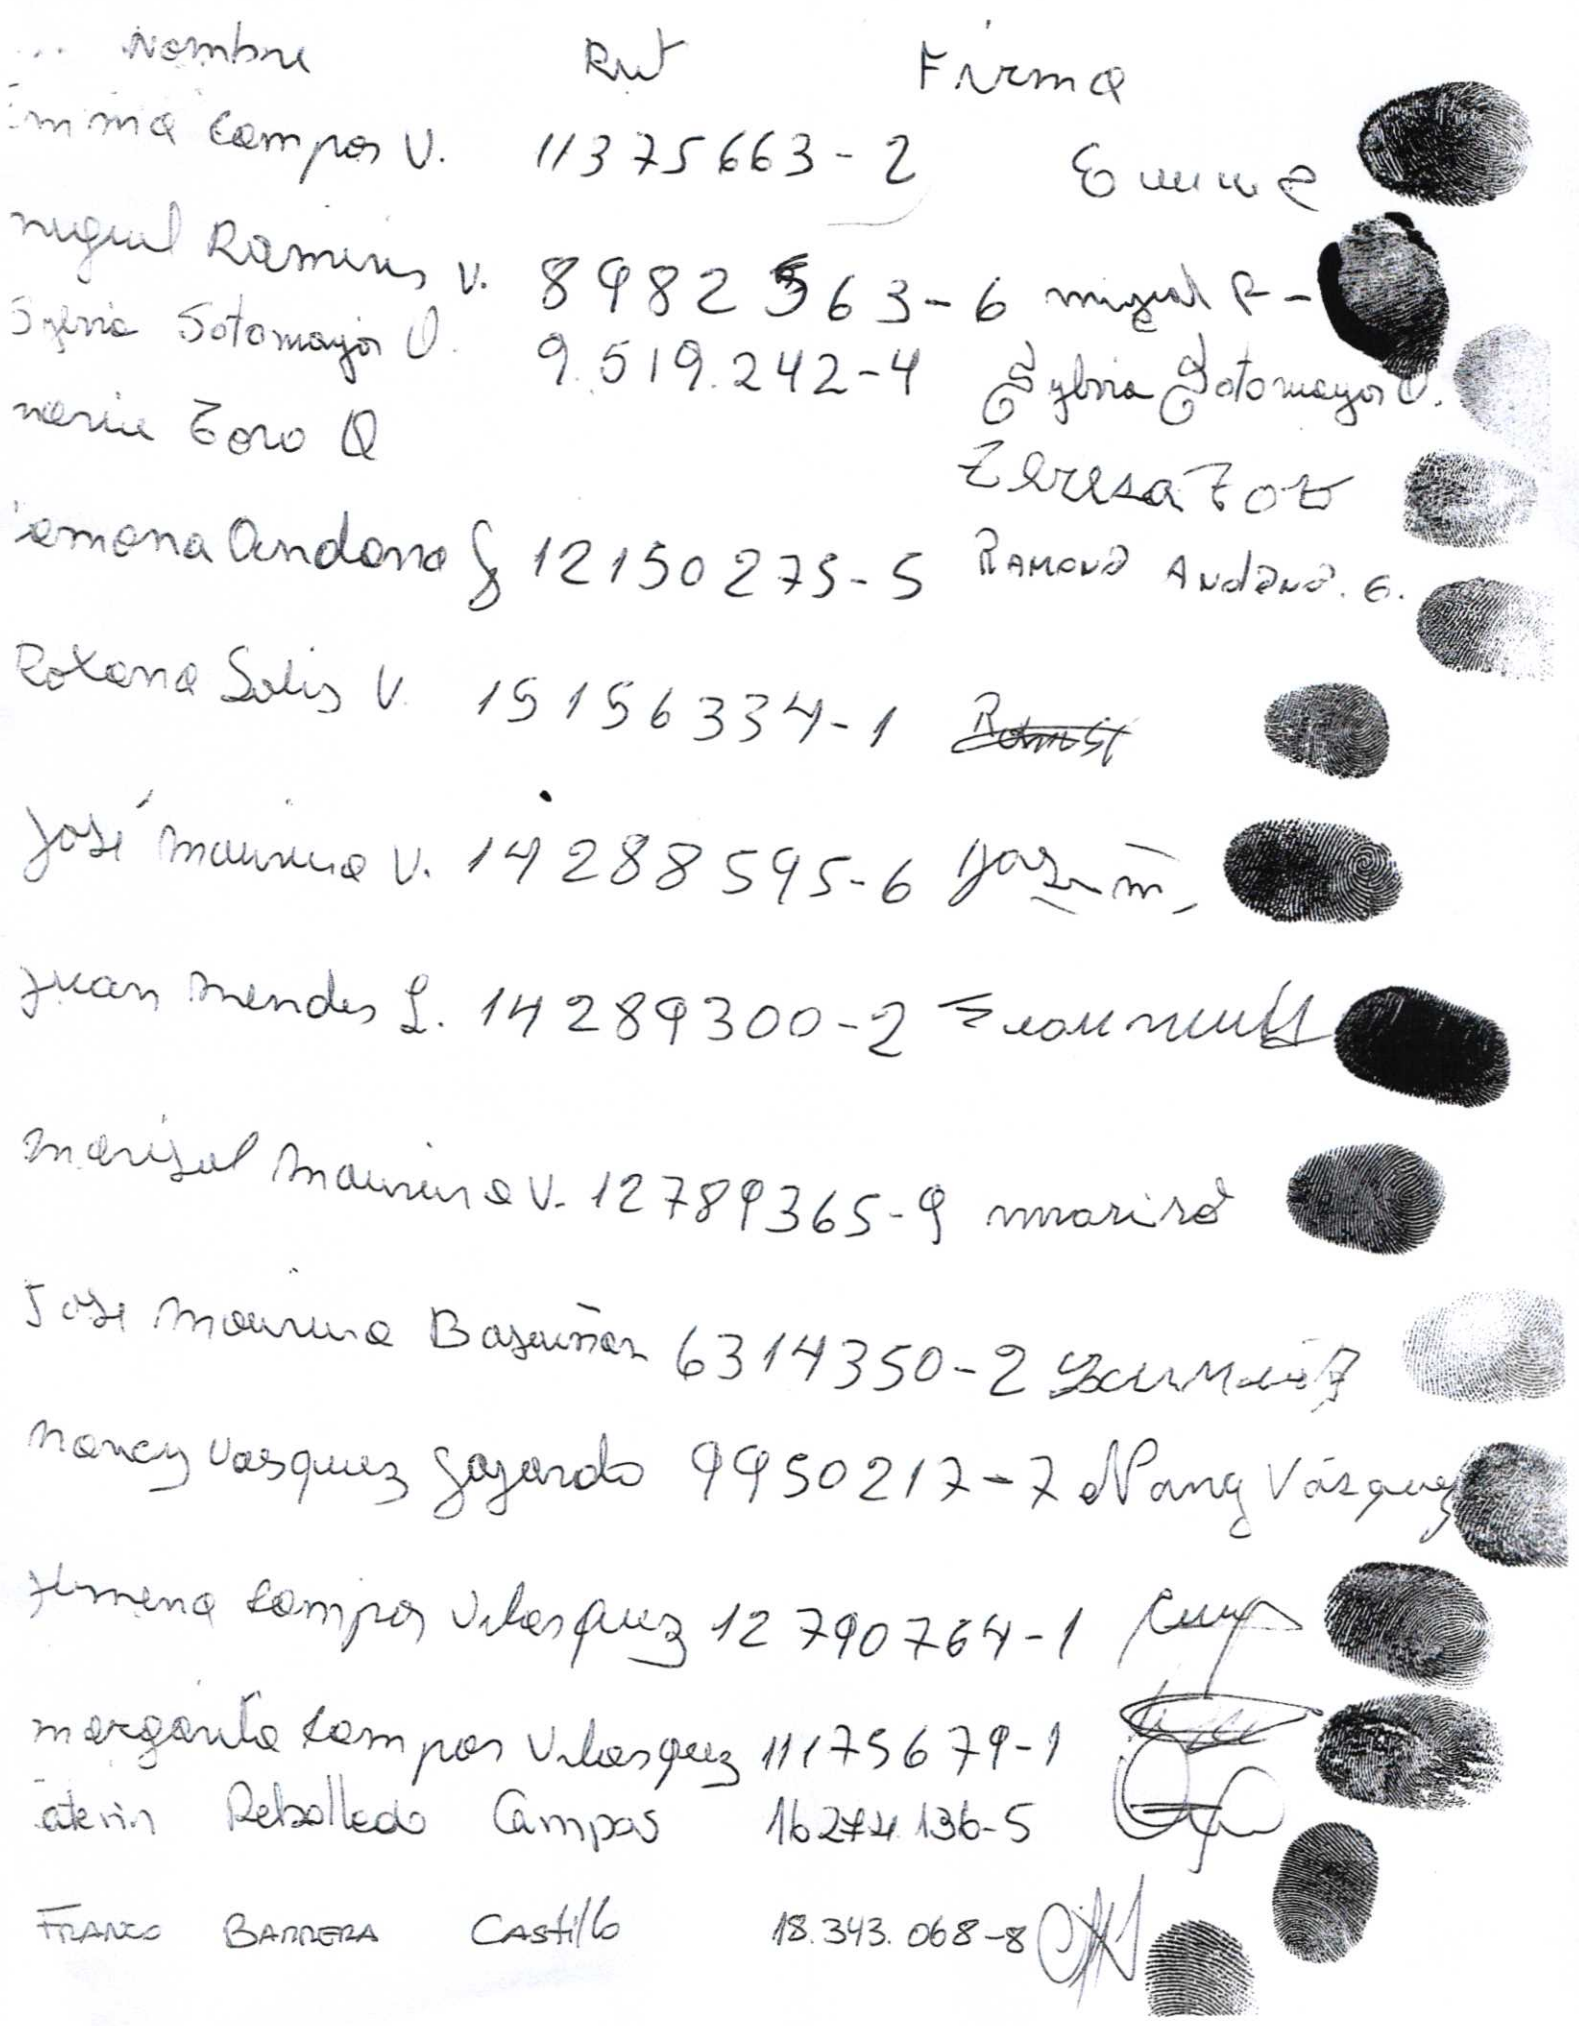 Nombre Rut Firma
Emma Campos V. 11375663-2 Emma
Miguel Ramires V. 8982563-6 miguel R-
Sylvia Sotomayor O. 9.519.242-4 Sylvia Sotomayor O.
Maria Toro Q Teresa Toro
Ramona Andana G 12150275-5 RAMONA ANDANA. G.
Roxana Solis V. 15156334-1
José Maurina V. 14288595-6 José m,
Juan Mendes L. 14289300-2
Marisol Maurina V. 12789365-9 marisol
Jose Maurina Bascuñan 6314350-2
Nancy Vasquez Gajardo 9950217-7 Nancy Vásquez
Jimena Campos Velasquez 12790764-1
Margarita Campos Velasquez 11175679-1
Caterin Rebolledo Campos 16274.136-5
FRANCO BARRERA CAStillo 18.343.068-8